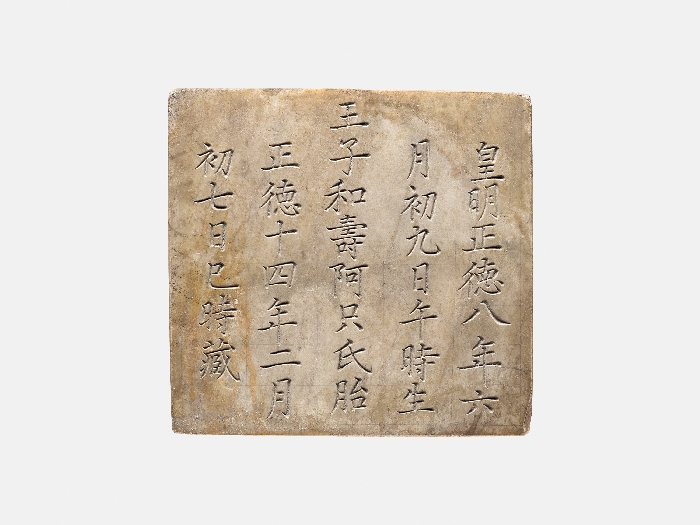 皇明正徳八年六
月初九日午時生
王子和壽阿只氏胎
正徳十四年二月
初七日巳時藏